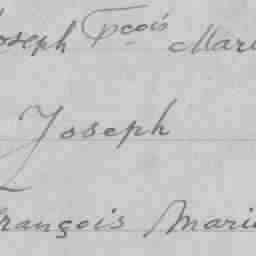 Joseph Fçois Mari
Joseph
François Marie